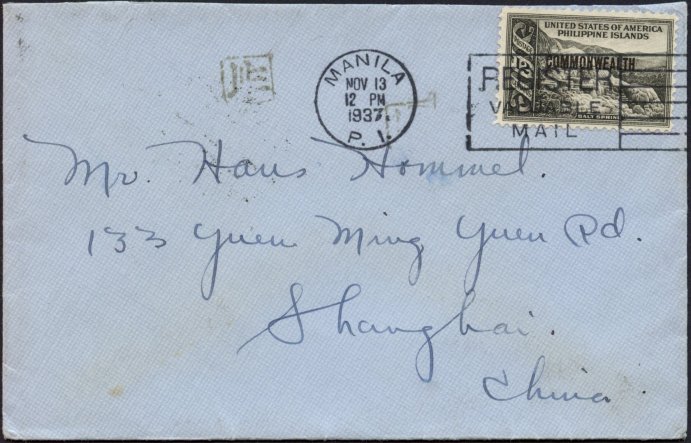 UNITED STATES OF AMERICA
PHILIPPINE ISLANDS
COMMONWEALTH
SALT SPRING
MANILA
NOV 13
12 PM
1937
P. I.
REGISTER
VALUABLE
MAIL
Mr. Hans Hommel.
133 Yuen Ming Yuen Rd.
Shanghai.
China